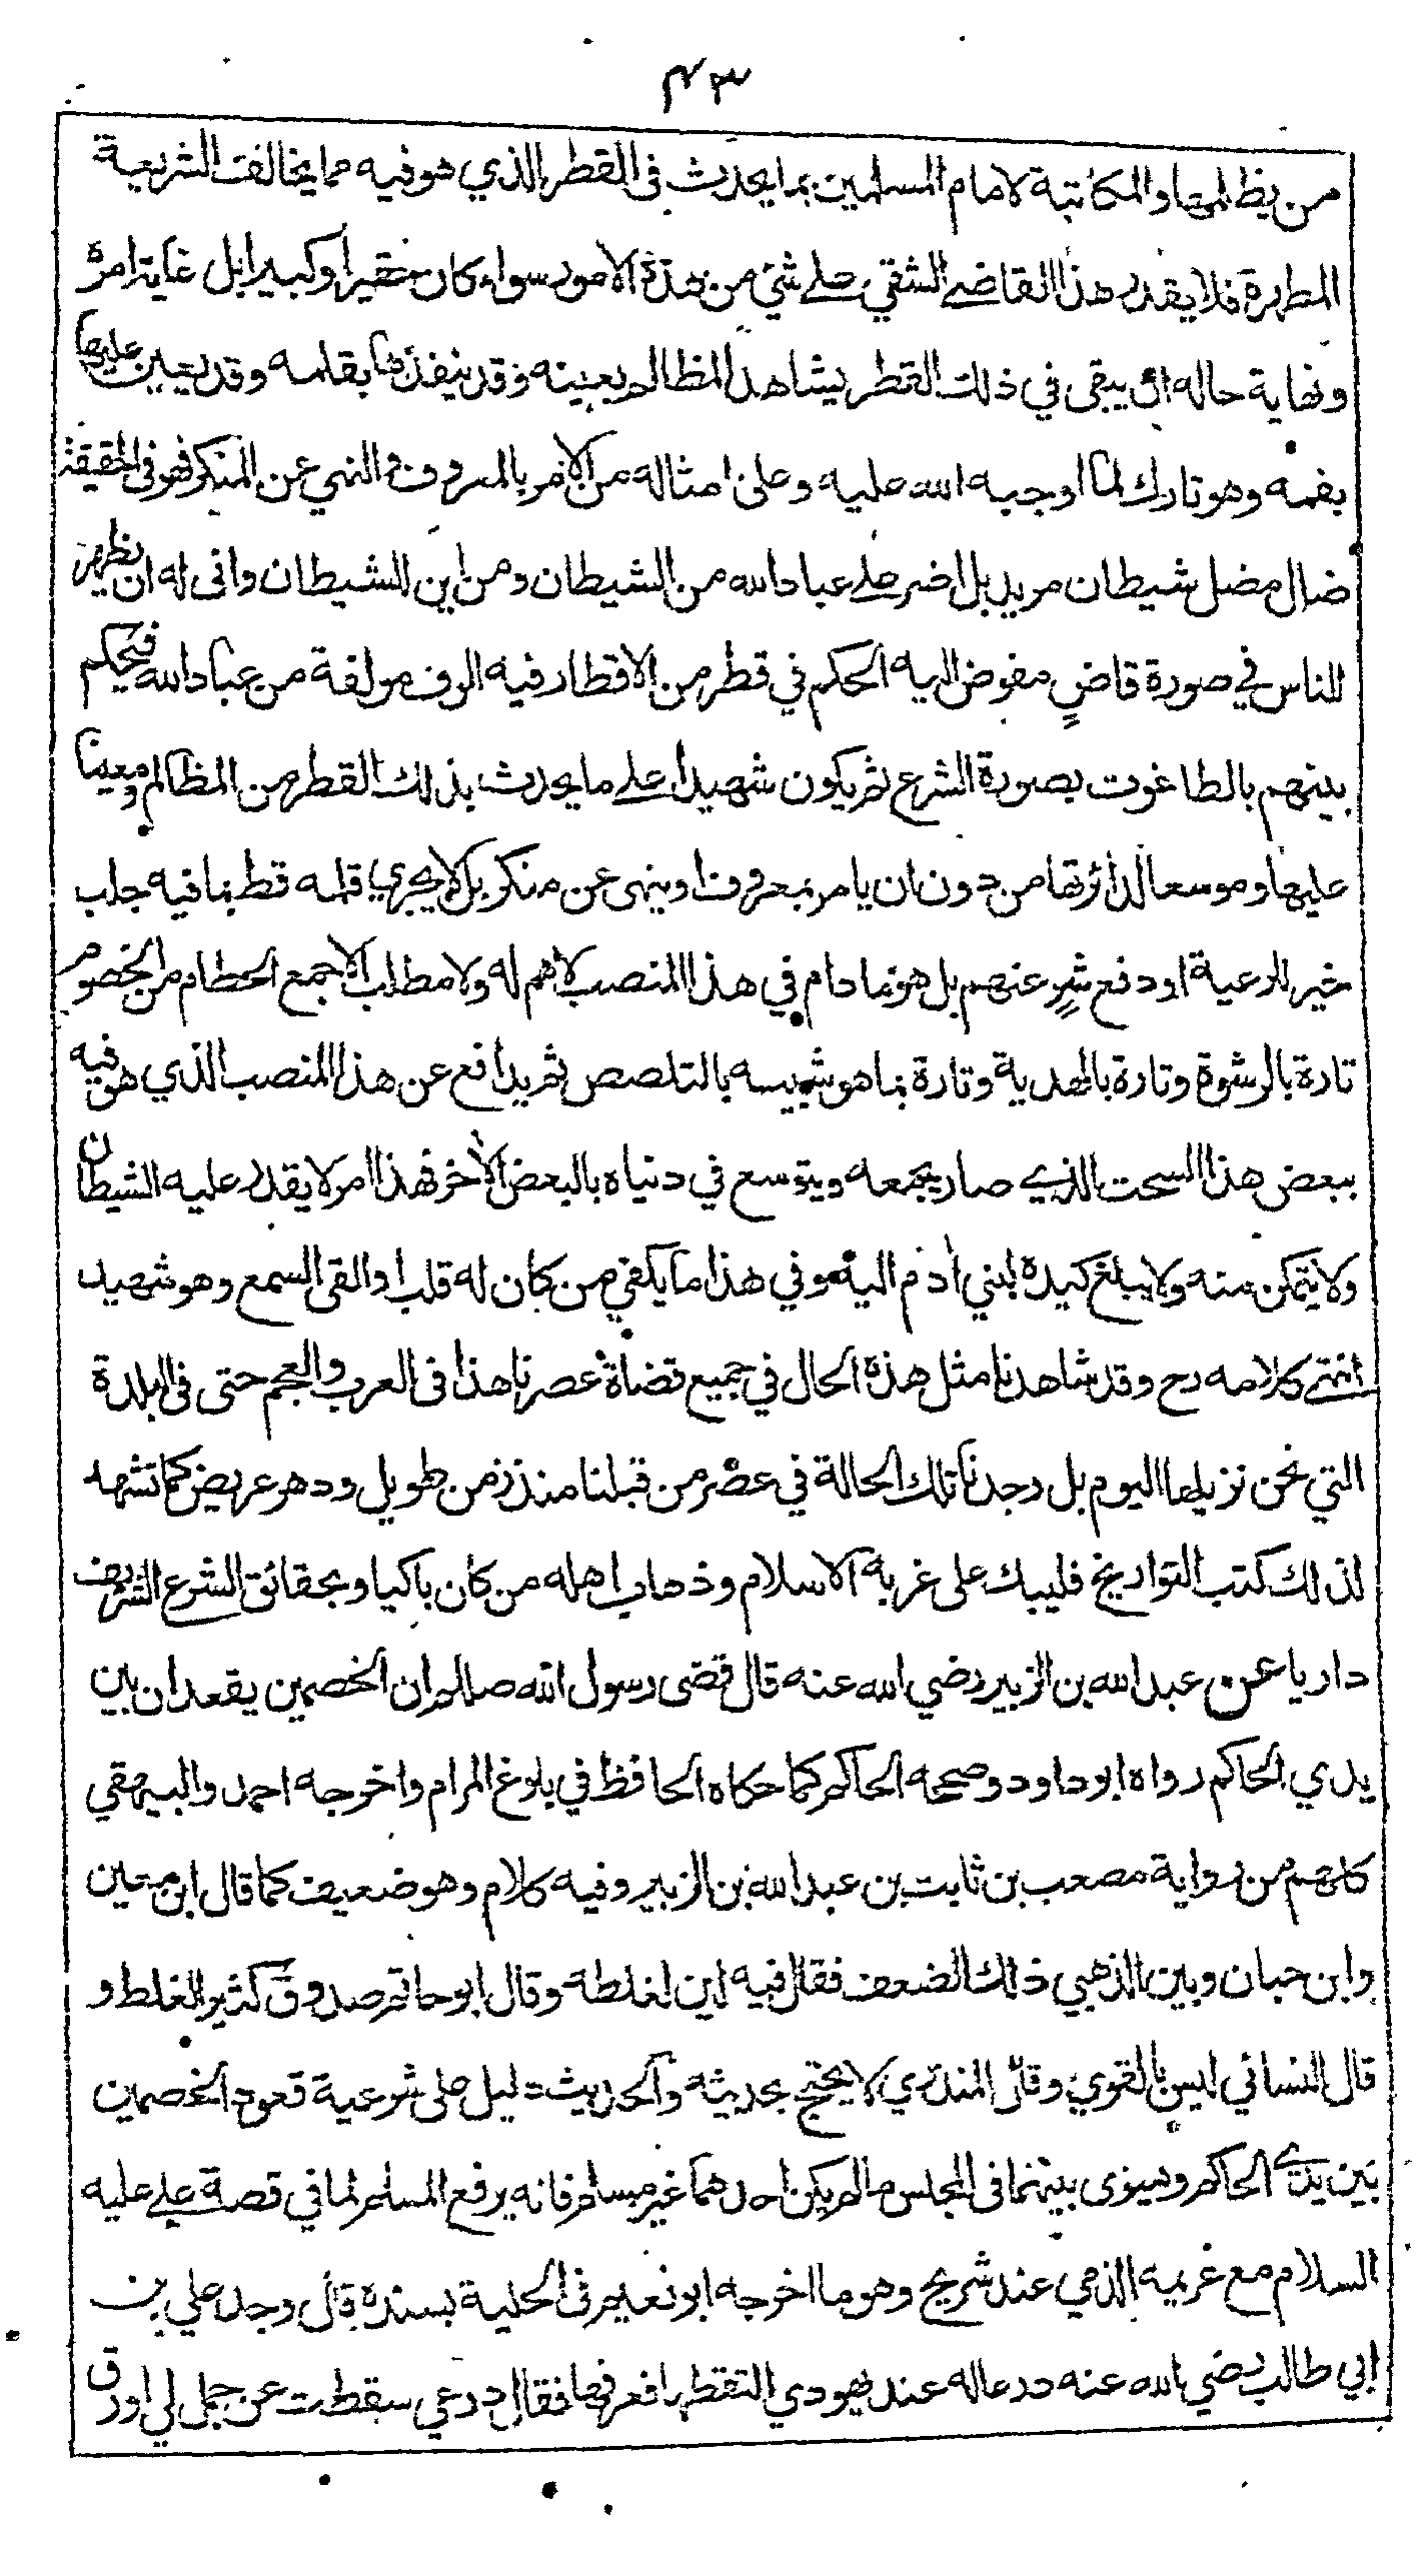 ٤٣
من يظلمها والمكاتبة لامام المسلمين بما يحدث فى القطر الذي هو فيه مما يخالف الشريعة
المطهرة فلا يقدر هذا القاضي الشقي على شيء من هذه الامور سواء كان حقيرا او كبيرا بل غاية امره
ونهاية حاله ان يبقى في ذلك القطر يشاهد المظالم بعينه وقد ينفذها بقلمه وقد يعين عليها
بفمه وهو تارك لما اوجبه الله عليه وعلى امثاله من الامر بالمعروف والنهي عن المنكر فهو فى الحقيقة
ضال مضل شيطان مريد بل اضر على عباد الله من الشيطان ومن اين للشيطان وانى له ان يظهر
للناس في صورة قاضٍ مفوض اليه الحكم في قطر من الاقطار فيه الوف مولفة من عباد الله فيحكم
بينهم بالطاغوت بصورة الشرع ثم يكون شهيدا على ما يحدث بذلك القطر من المظالم ومعينا
عليها وموسعا لدائرتها من دون ان يامر بمعروف او ينهى عن منكر بل لا يجري قلمه قط بما فيه جلب
خير للرعية او دفع شرٍ عنهم بل هو ما دام في هذا المنصب لا هم له ولا مطلب الا جمع الحطام من الخصوم
تارة بالرشوة وتارة بالهدية وتارة بما هو شبيه بالتلصص ثم يدافع عن هذا المنصب الذي هو فيه
ببعض هذا السحت الذي صار يجمعه ويتوسع في دنياه بالبعض الاخر فهذا امر لا يقدر عليه الشيطان
ولا يتمكن منه ولا يبلغ كيده لبني آدم اليه وفي هذا ما يكفي من كان له قلب او القى السمع وهو شهيد
انتهى كلامه رح وقد شاهدنا مثل هذه الحال في جميع قضاة عصرنا هذا فى العرب والعجم حتى فى البلدة
التي نحن نزيلها اليوم بل وجدنا تلك الحالة في عصر من قبلنا منذ زمن طويل ودهر عريض كما تشهد
لذلك كتب التواريخ فليبك على غربة الاسلام وذهاب اهله من كان باكيا وبحقائق الشرع الشريف
داريا عن عبد الله بن الزبير رضي الله عنه قال قضى رسول الله صللم ان الخصمين يقعدان بين
يدي الحاكم رواه ابو داود وصححه الحاكم كما حكاه الحافظ في بلوغ المرام واخرجه احمد والبيهقي
كلهم من رواية مصعب بن ثابت بن عبد الله بن الزبير وفيه كلام وهو ضعيف كما قال ابن معين
وابن حبان وبين الذهبي ذلك الضعف فقال فيه لين لغلطه وقال ابو حاتم صدوق كثير الغلط و
قال النسائي ليس بالقوي وقال المنذري لا يحتج بحديثه والحديث دليل على شرعية قعود الخصمين
بين يدي الحاكم ويسوى بينهما فى المجلس مالم يكن احدهما غير مسلم فانه يرفع المسلم لما في قصة علي عليه
السلام مع غريمه الذمي عند شريح وهو ما اخرجه ابو نعيم فى الحلية بسنده قال وجد علي بن
ابي طالب رضي الله عنه درعا له عند يهودي التقطها فعرفها فقال درعي سقطت عن جمل لي اورق